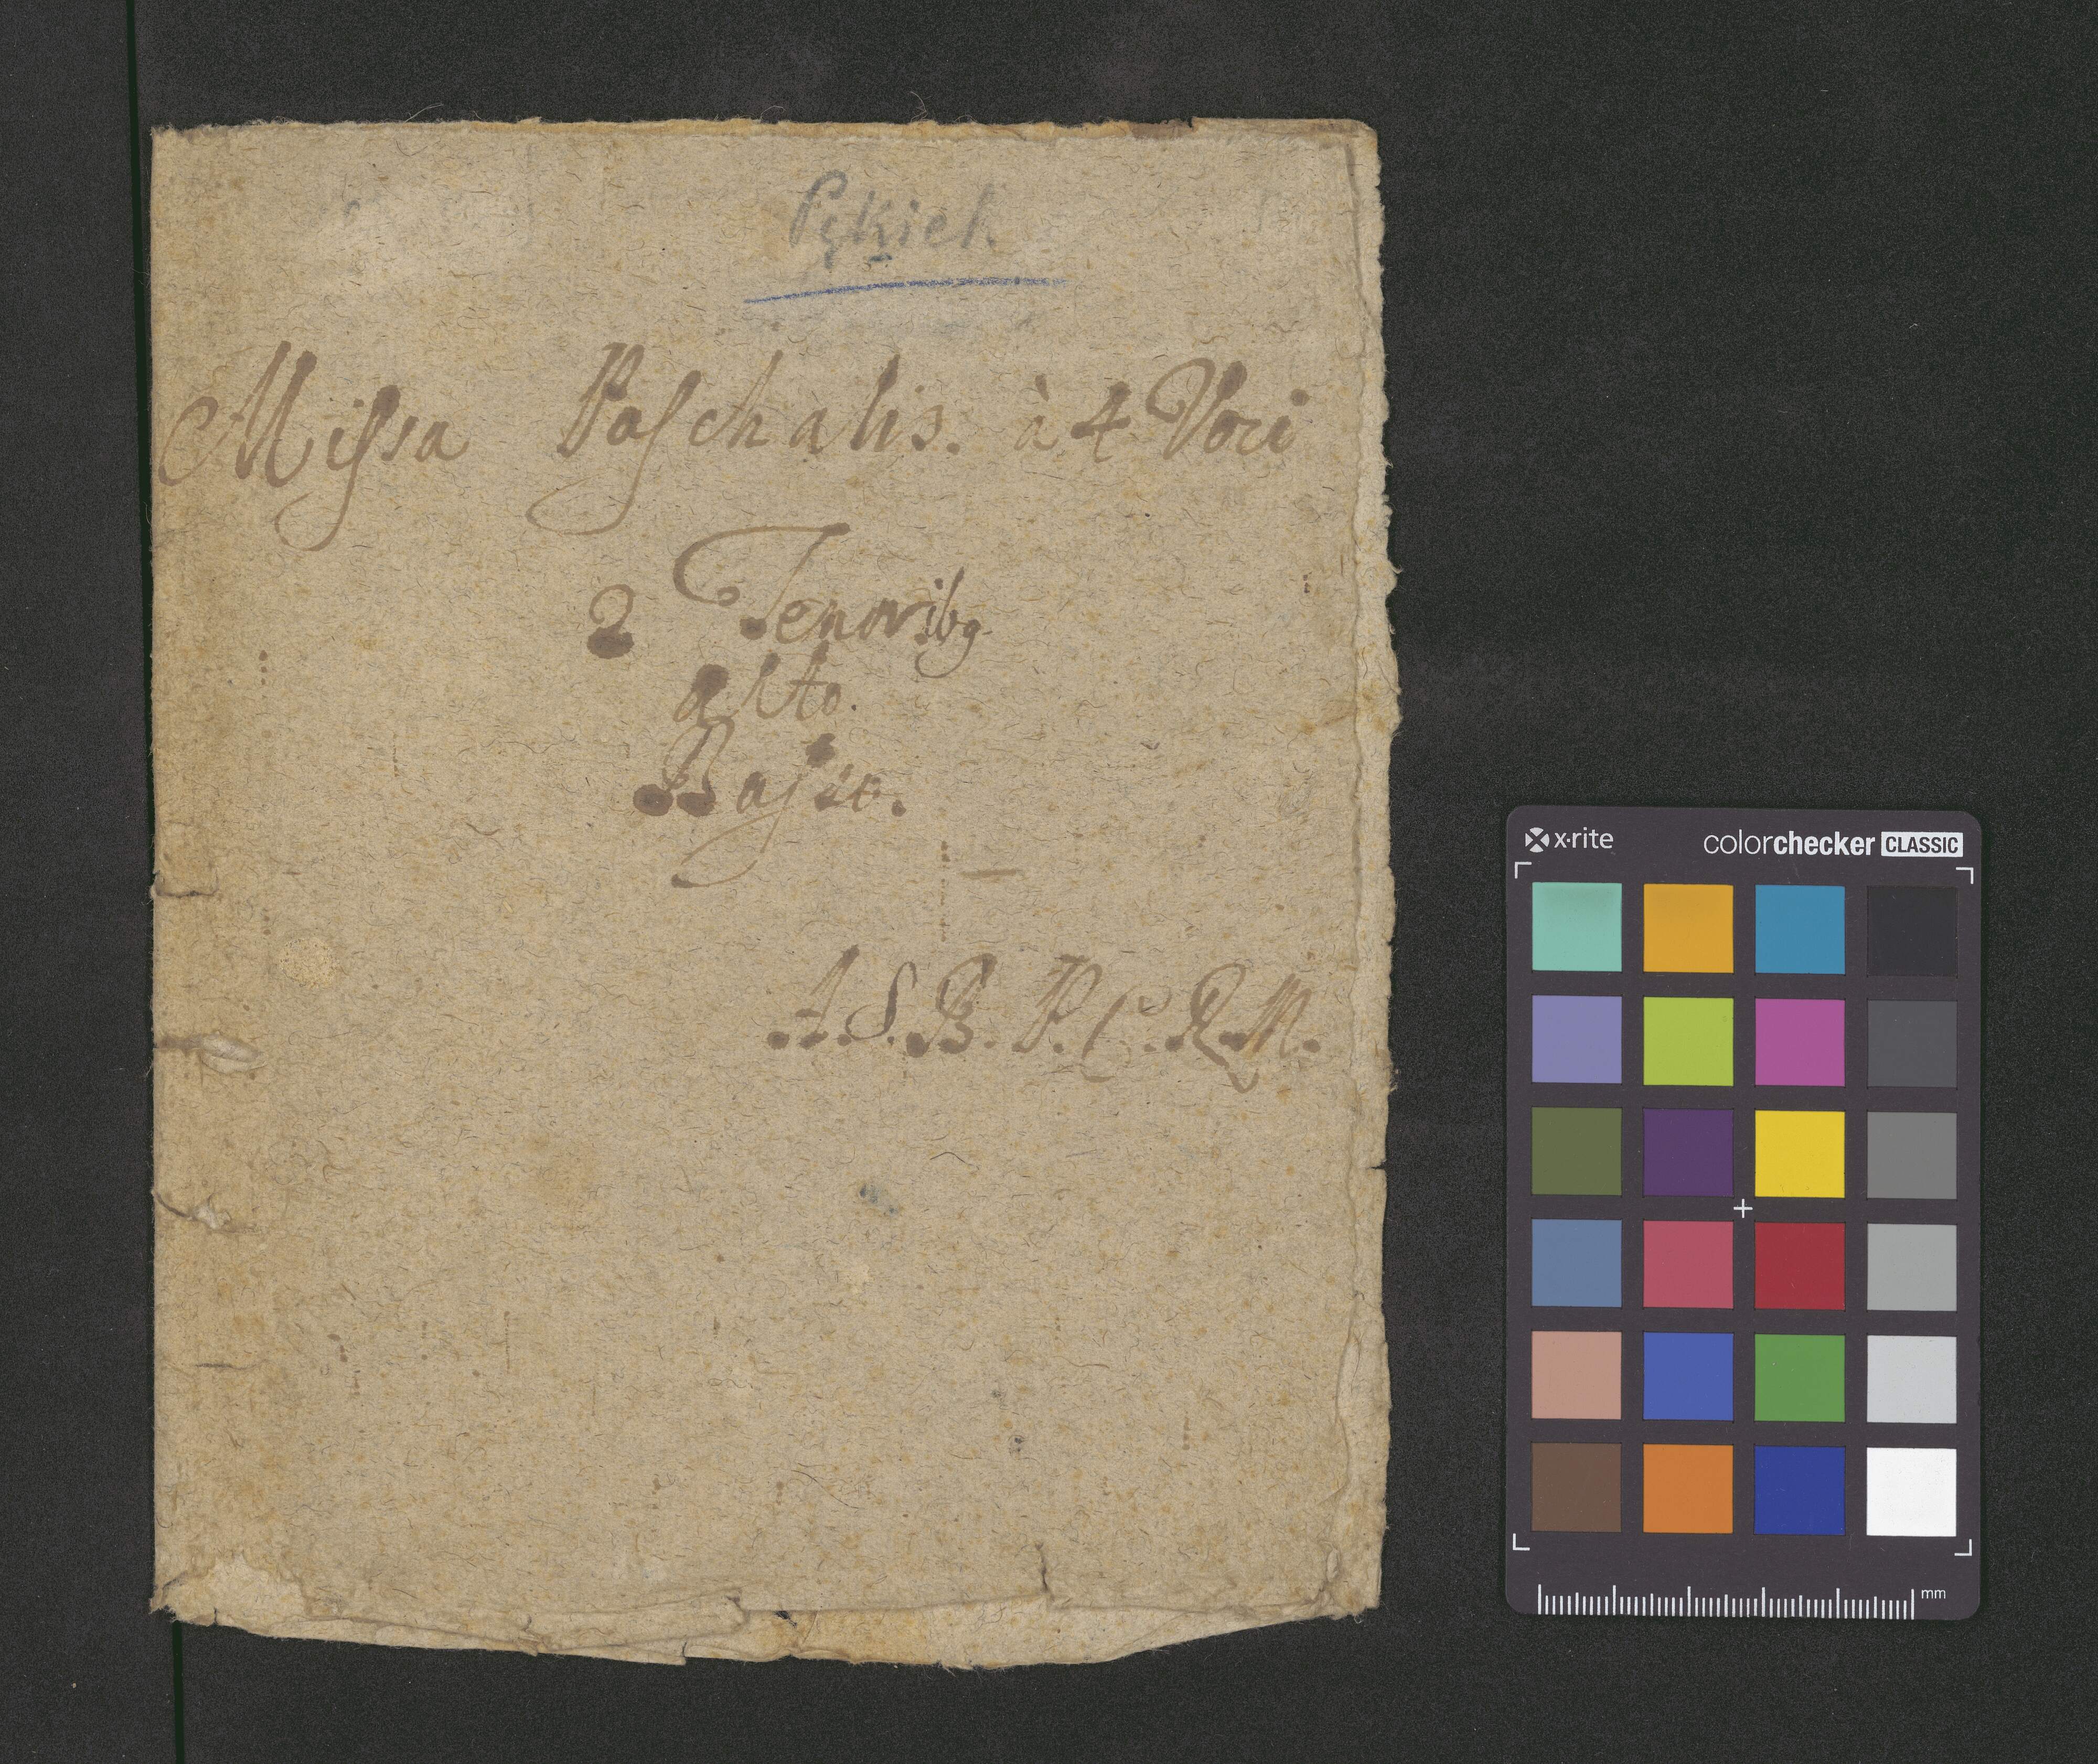 Pękiel
Missa Paschalis. à 4 Voci
2 Tenoribꝰ
alto.
Basso.
A. S. B. P. C. R. M.
x·rite colorchecker CLASSIC
mm